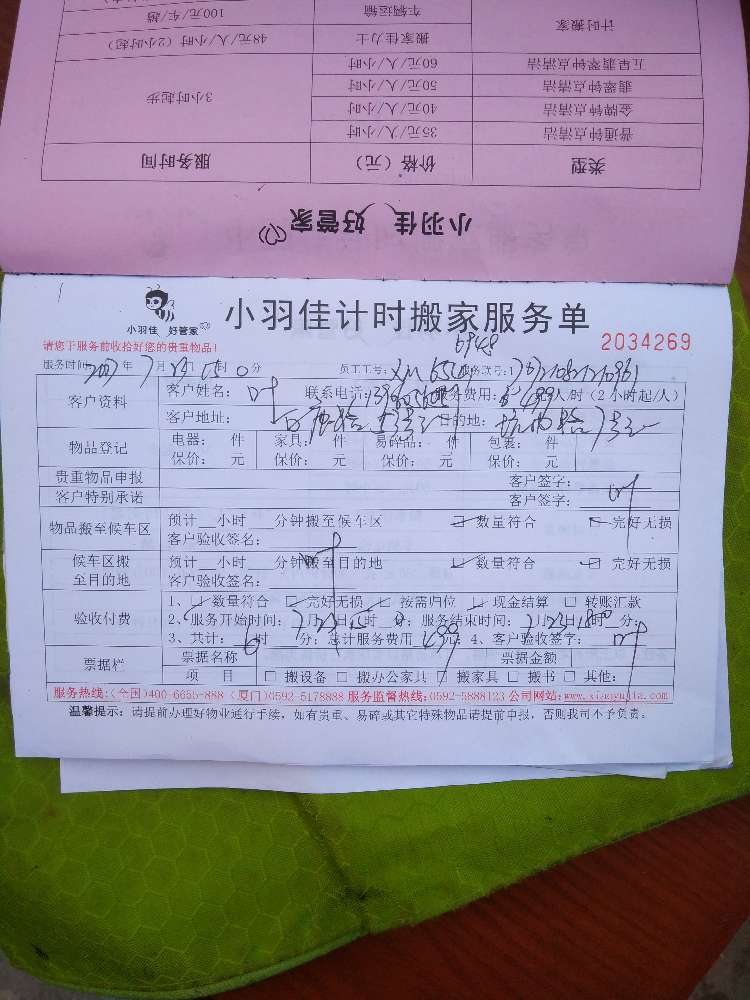 100元/车/趟
车辆运输
计时搬家
48元/人/小时（2小时起）
搬家佳力士
60元/人/小时
五星翡翠钟点清洁
3小时起步
50元/人/小时
翡翠钟点清洁
40元/人/小时
金牌钟点清洁
35元/人/小时
普通钟点清洁
服务时间
价格（元）
类型
小羽佳 好管家
小羽佳 好管家
小羽佳计时搬家服务单
请您于服务前收拾好您的贵重物品!
6948
2034269
服务时间: 年 7 月 日 时 0 分 员工工号: 服务联号:
客户资料
客户姓名: 叶 联系电话: 服务费用: 人/时（2小时起/人）
客户地址: 目的地:
物品登记
电器: 件 家具: 件 易碎品: 件 包裹: 件
保价: 元 保价: 元 保价: 元 保价: 元
贵重物品申报 客户签字:
客户特别承诺 客户签字: 叶
物品搬至候车区
预计__小时___分钟搬至候车区 ☑ 数量符合 ☑ 完好无损
客户验收签名: 叶
候车区搬至目的地
预计__小时___分钟搬至目的地 ☑ 数量符合 ☑ 完好无损
客户验收签名: 叶
验收付费
1、☑ 数量符合 ☑ 完好无损 ☑ 按需归位 ☑ 现金结算 □ 转账汇款
2、服务开始时间: 7月 日 时 分; 服务结束时间: 7月 日 时 分;
3、共计: 6 时 分; 总计服务费用 499 元; 4、客户验收签字: 叶
票据栏
票据名称 票据金额
项 目 □ 搬设备 □ 搬办公家具 □ 搬家具 □ 搬书 □ 其他:
服务热线:（全国）400-6655-888（厦门）0592-5178888 服务监督热线:0592-5888123 公司网站:www.xiaoyujia.com
温馨提示: 请提前办理好物业通行手续，如有贵重、易碎或其它特殊物品请提前申报，否则我司不予负责。